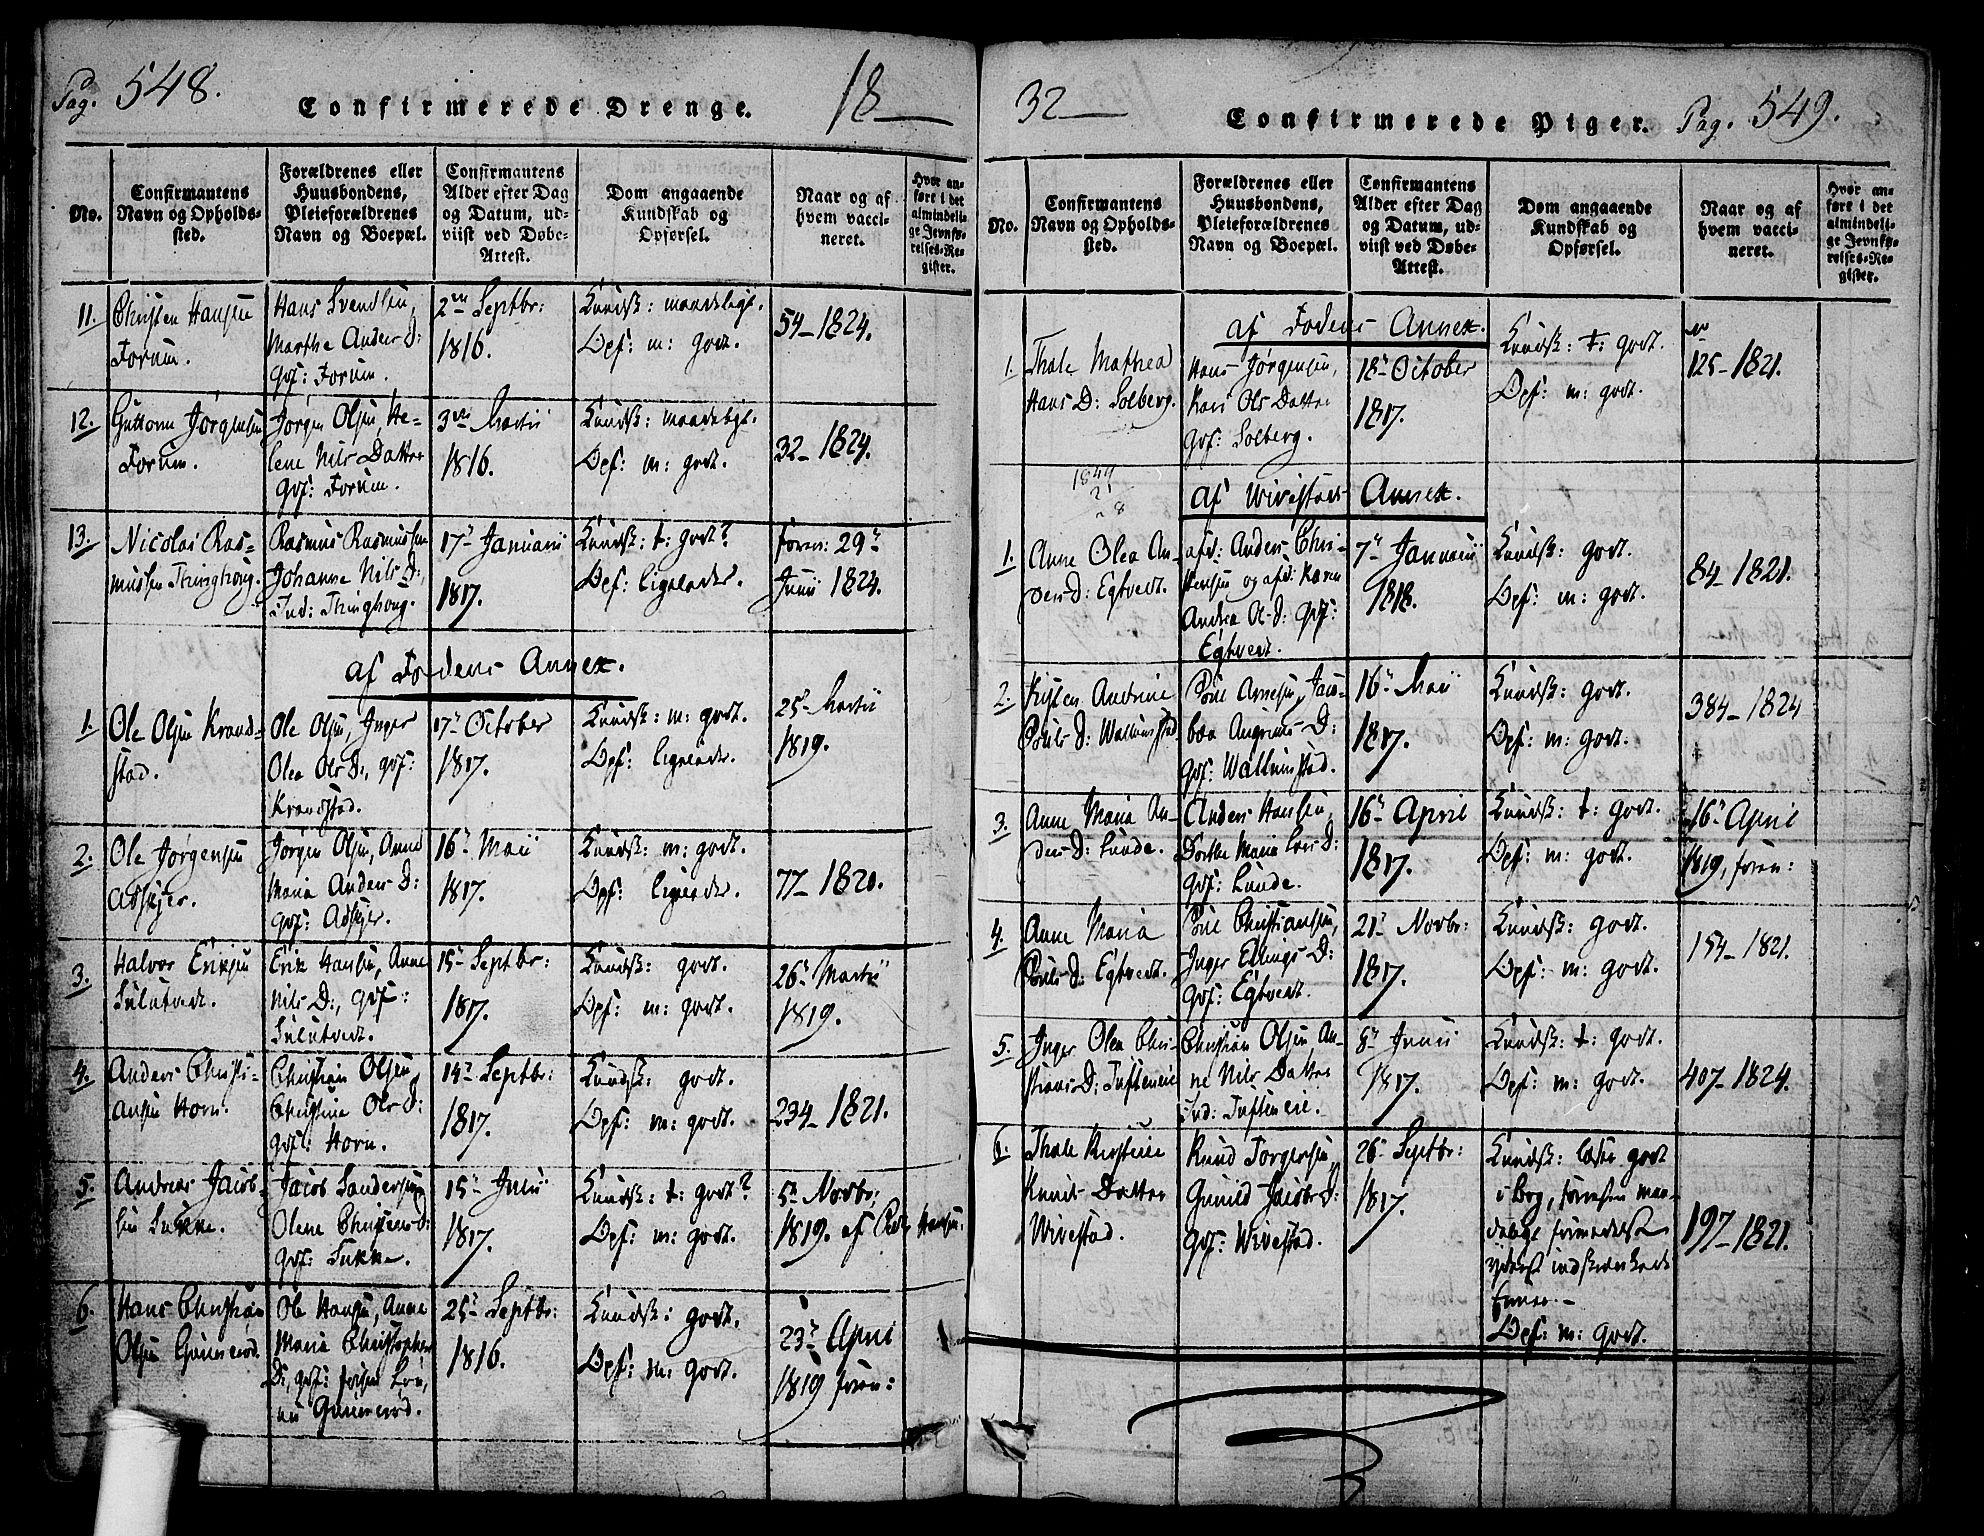 Pag. 548.
Confirmerede Drenge.
18
No.
Confirmantens
Navn og Opholds-
sted.
Forældrenes eller
Huusbondens,
Pleieforældrenes
Navn og Boepæl.
Confirmantens
Alder efter Dag
og Datum, ud-
viist ved Døbe-
Attest.
Dom angaaende
Kundskab og
Opførsel.
Naar og af
hvem vacci-
neret.
Hvor an-
ført i det
almindeli-
ge Jevnfø-
relses-Re-
gister.
11.
Christen Hansen
Forum.
Hans Svendsen,
Marthe Anders D:
Gsf: Forum.
2den Septbr:
1816.
Kundsk: maadeligt.
Opf: m: godt.
54-1824.
12.
Guttorm Jørgensen
Forum.
Jørgen Olsen He-
lene Nils Datter
Gsf: Forum.
3den Martii
1816.
Kundsk: maadeligt.
Opf: m: godt.
32-1824.
13.
Nicolai Ras-
mussen Thinghoug.
Rasmus Rasmussen
Johanne Nils D:,
Ind: Thinghoug.
17de Januarii
1817.
Kundsk: t: godt?
Opf: ligeledes.
foren: 29de
Junii 1824.
af Fodens Annex.
1.
Ole Olsen Krand-
stad.
Ole Olsen, Inger
Olea Ols D:, gsf:
Krandstad.
17de October
1817.
Kundsk: m: godt.
Opf: ligeledes.
25de Martii
1819.
2.
Ole Jørgensen
Adskjer.
Jørgen Olsen, Anne
Maria Anders D:
gsf: Adskjer.
16de Maii
1817.
Kundsk: m: godt.
Opf: ligeledes.
77-1821.
3.
Halvor Eriksen
Sulutvedt.
Erik Hansen, Anne
Nils D:, gsf:
Sulutvedt.
15de Septbr:
1817.
Kundsk: godt.
Opf: m: godt.
26de Martii
1819.
4.
Anders Christi-
ansen Horn.
Christian Olsen,
Christine Ols D:
gsf: Horn.
14de Septbr:
1817.
Kundsk: godt.
Opf: m: godt.
234-1821.
5.
Andreas Jacob-
sen Sukke.
Jacob Sandersen
Olene Christens D:
gsf: Sukke.
15de Junii
1817.
Kundsk: t: godt?
Opf: m: godt.
5te Novbr:
1819. af Hansen.
6.
Hans Christian
Olsen Gunnerød.
Ole Hansen, Anne
Maria Christopher
D:, gsf:
Gunnerød.
25de Septbr:
1816.
Kundsk: godt.
Opf: m: godt.
23de April
1819 foren:
32
Confirmerede Piger.
Pag. 549.
No.
Confirmantens
Navn og Opholds-
sted.
Forældrenes eller
Huusbondens,
Pleieforældrenes
Navn og Boepæl.
Confirmantens
Alder efter Dag
og Datum, ud-
viist ved Døbe-
Attest.
Dom angaaende
Kundskab og
Opførsel.
Naar og af
hvem vacci-
neret.
Hvor an-
ført i det
almindeli-
ge Jevnfø-
relses-Re-
gister.
af Fodens Annex.
1.
Thale Mathea
Hans D: Solberg.
Hans Jørgensen,
Kari Ols Datter
gsf: Solberg.
18de October
1817.
Kundsk: t: godt.
Opf: m: godt.
125-1821.
1844
21
af Wivestads Annex.
1.
Anne Olea An-
ders D: Egtvedt.
afd: Anders Chri-
stensen og afd: Karen
Andrea Ol D: gsf:
Egtvedt.
7de Januarii
1818.
Kundsk: godt.
Opf: m: godt.
84-1821.
2.
Kisten Andrine
Pouls D: Wallumstad.
Poul Arnesen, Jaco-
bea Angrims D:
gsf: Wallumstad.
16de Maii
1817.
Kundsk: godt.
Opf: m: godt.
384-1824
3.
Anne Maria An-
ders D: Lunde.
Anders Hansen,
Dorthe Maria Lars D:
gsf: Lunde.
16de April
1817.
Kundsk: t: godt.
Opf: m: godt.
16de April
1819, foren:
4.
Anne Maria
Pouls D: Egtvedt.
Poul Christiansen,
Inger Ellings D:
gsf: Egtvedt.
21de Novbr:
1817.
Kundsk: godt.
Opf: m: godt.
154-1821.
5.
Inger Olea Chri-
stians D: Tufteneie
Christian Olsen An-
ne Nils Datter
Ind: Tufteneie.
8de Junii
1817.
Kundsk: t: godt.
Opf: m: godt.
407-1824.
6.
Thale Kirstine
Knuds Datter
Wivestad.
Knud Torgersen,
Gunild Jacobs D:
gsf: Wivestad.
26de Septbr:
1817.
Kundsk: læser godt
i Bog, forresten maa-
deligt formedelst
yderst indskrænkede
Evner.-
Opf: m: godt.
197-1821.